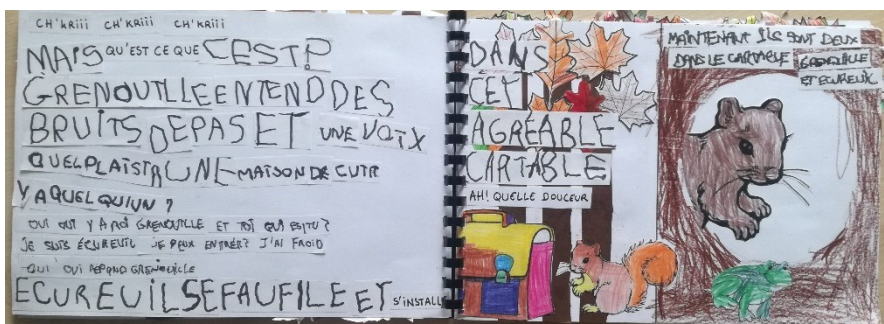 CH'KRIII CH'KRIII CH'KRIII
MAIS QU'EST CE QUE C'EST?
GRENOUILLE ENTEND DES
BRUITS DE PAS ET UNE VOIX
QUEL PLAISIR UNE MAISON DE CUIR
Y A QUELQU'UN ?
OUI OUI Y A MOI GRENOUILLE ET TOI QUI ES TU ?
JE SUIS ÉCUREUIL JE PEUX ENTRER? J'AI FROID
OUI OUI REPOND GRENOUILLE
ECUREUIL SE FAUFILE ET S'INSTALL
DANS
CET
AGRÉABLE
CARTABLE
AH! QUELLE DOUCEUR
MAINTENANT ILS SONT DEUX
DANS LE CARTABLE GRENOUILLE
ET ECUREUIL